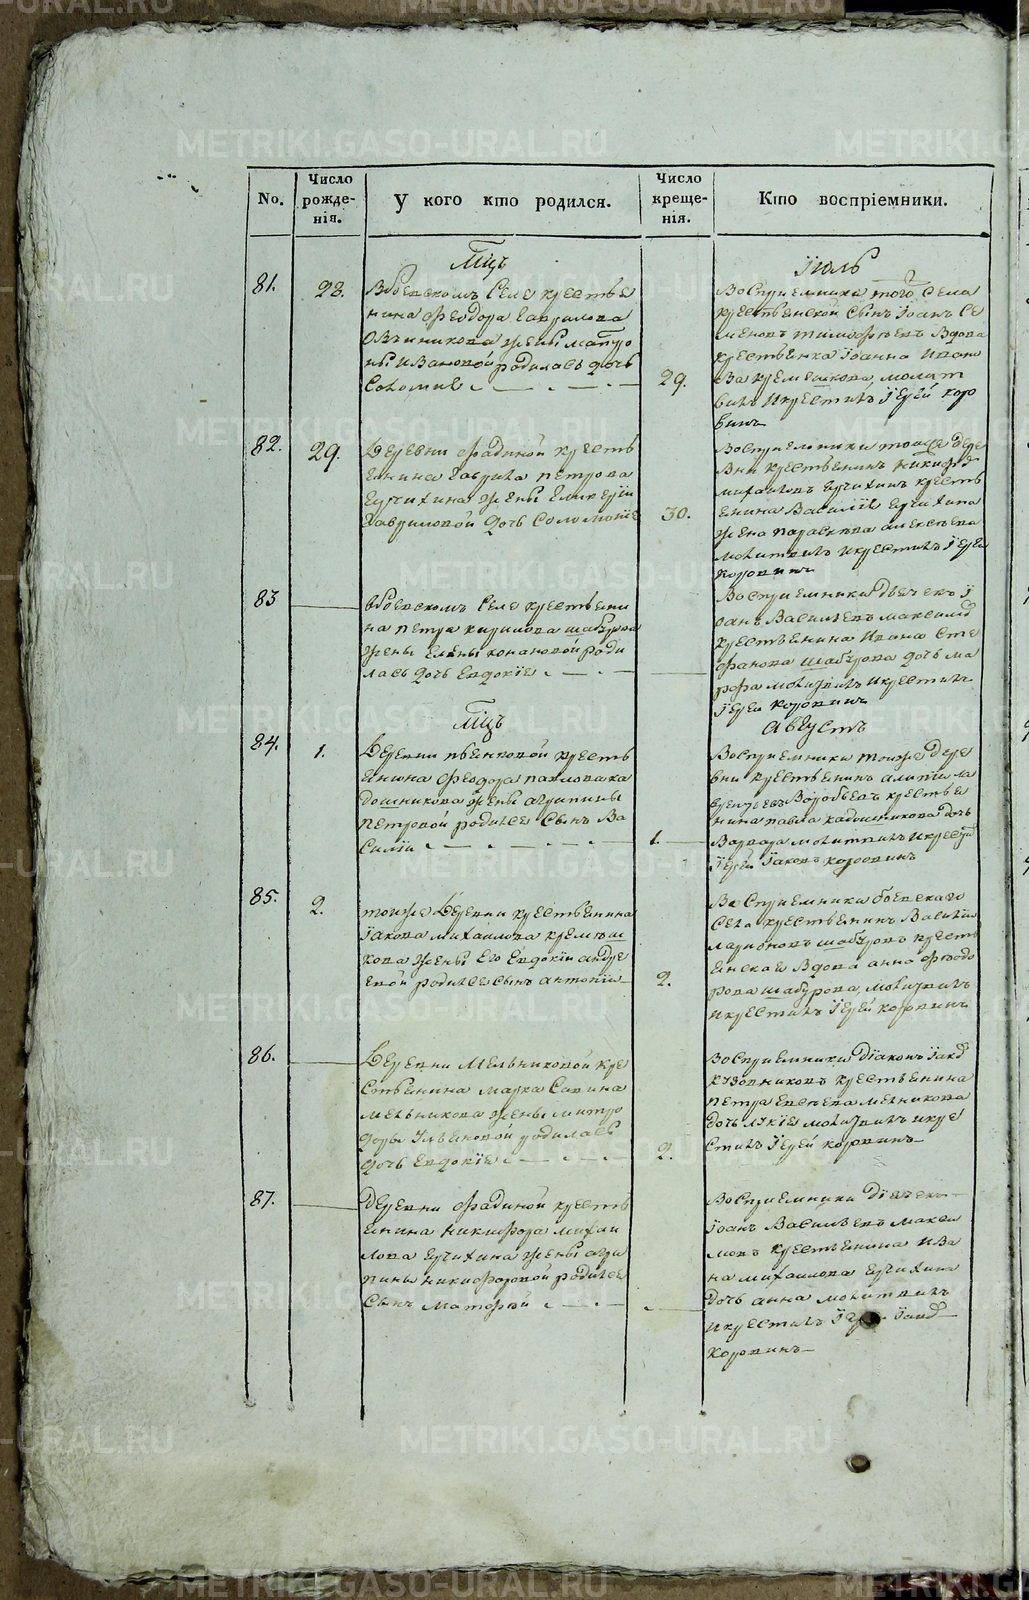 METRIKI.GASO-URAL.RU
No.
Число рожде-
нія.
У кого кто родился.
Число креще-
нія.
Кто воспріемники.
Мцъ
Іюль
81.
28.
Вбоевскомъ Селе крестья
нина Феодора Гаврилова
Овчиникова жены матро
ны Ивановой родилась дочь
Соломия
29.
Воспріемники того Села
крестьенской сынъ Іоанъ Се
меновъ тимофеевъ Вдова
крестьянка Іоанна Ивано
ва кремешкова, молит
вилъ икрестилъ Іерей коро
винъ
82.
29.
Деревни Фадиной кресть
енина Гаврила Петрова
жены Гликерїи
Гавриловой дочь Соломония
30.
Воспріемники тоиже дере
вни крестьенинъ никифоръ
михаиловъ кресть
енина Василїя
жена параскева алексеева
молитвилъ икрестилъ Іерей
коровинъ
83
вбоевскомъ Селе крестьени
на петра кирилова шабурова
жены Елены конановой роди
лась дочь Евдокїя
Воспріемники дьячекъ І
оанъ Васильевъ максимов
крестьенина Ивана Сте
фанова шабурова дочь ма
рфа молитвилъ икрестилъ
Іерей коровинъ
Мцъ
Августъ
84.
1.
Деревни пьенковой кресть
енина Феодора павлова ка
дошникова жены агрипины
Петровой родился сынъ Ва
силїи
1.
Воспріемники тоиже дере
вни крестьенинъ
Воробьевъ крестья
нина павла кадошникова дочь
Варвара молитвилъ икрести
Іерей Іаковъ коровинъ
85.
2.
тоиже Деревни крестьенина
Іакова михаилова кремеш
кова жены Его Евдокїи андре
евой родился сынъ антонїи
2.
Воспріемники боевскаго
Села крестьенинъ Василїи
ларионовъ шабуровъ кресть
енская Вдова анна Феодо
рова шабурова, молитвилъ
икрестилъ Іерей коровинъ
86.
Деревни Мельниковой кре
стьенина марка Савина
мельникова жены митро
доры Ильиновой родилась
дочь Евдокїя
2.
Воспріемники Дїаконъ Іаков
кузовниковъ крестьенина
петра Евсѣева мелникова
дочь лукїя молитвилъ икре
стилъ Іерей коровинъ
87.
Деревни Фадиной кресть
енина никифора михаи
лова жены агри
пины никифоровой родился
сынъ матфей
Воспріемники дїячекъ
Іоанъ Васильевъ макси
мовъ крестьенина ива
на михаилова
дочь анна молитвилъ
икрестилъ Іерей Іаков
коровинъ